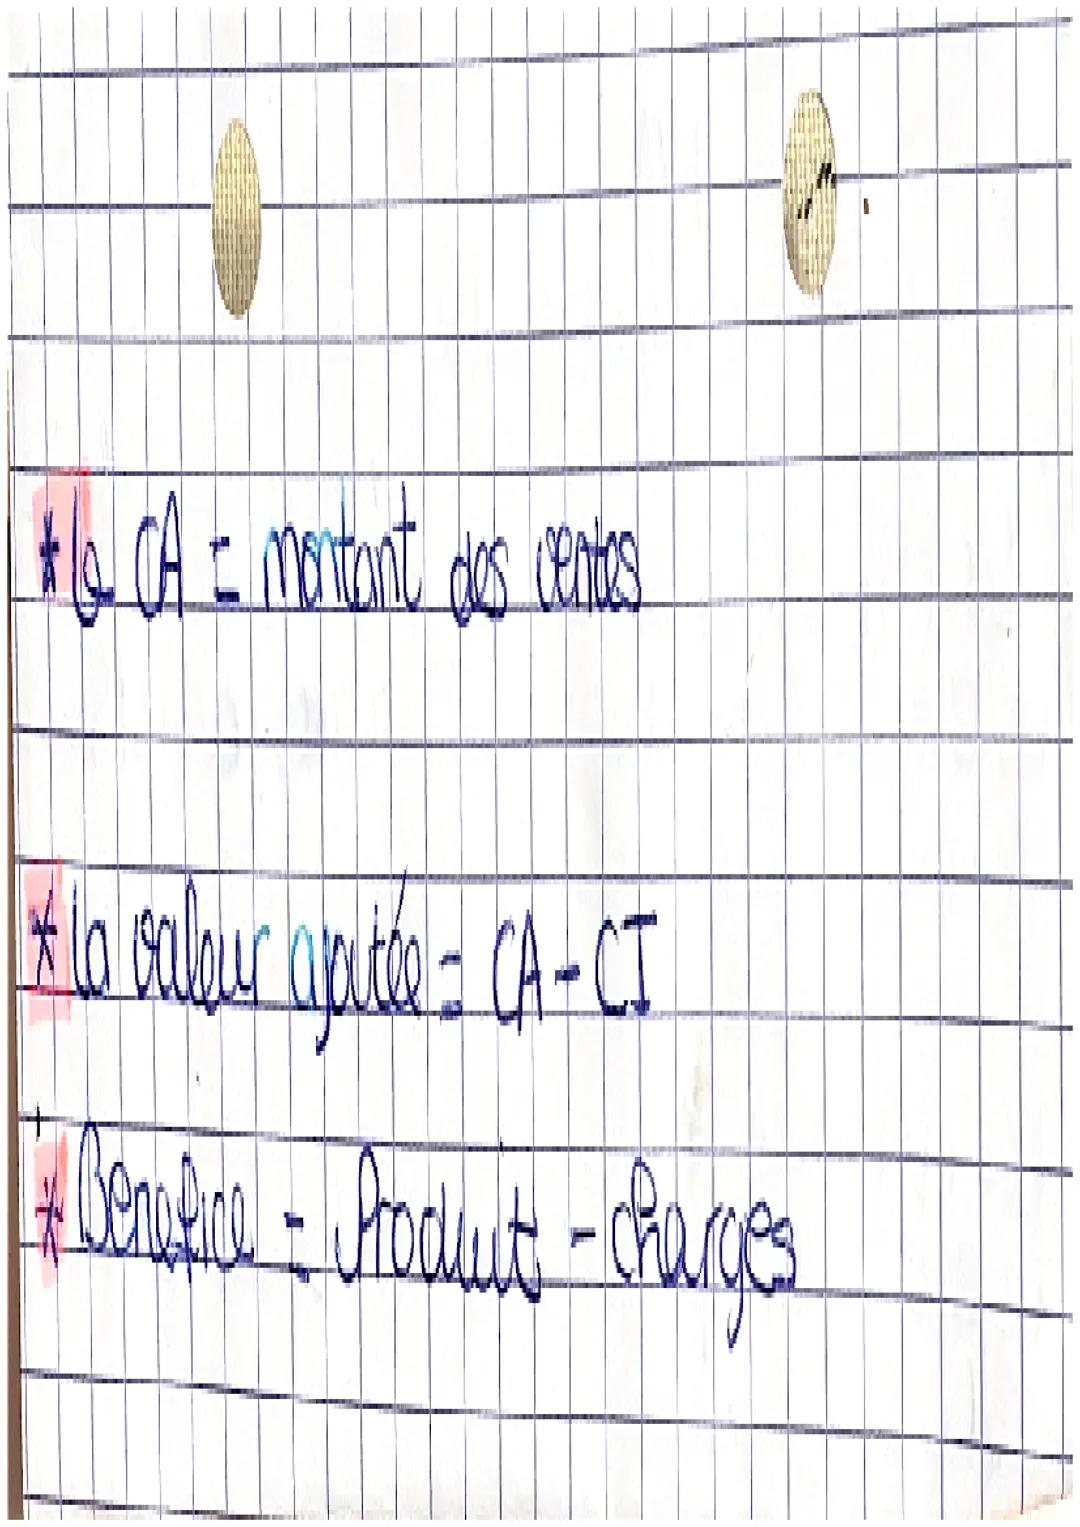 * le CA = montant des ventes
* la valeur ajoutée = CA - CI
* Bénéfice = Produit - charges